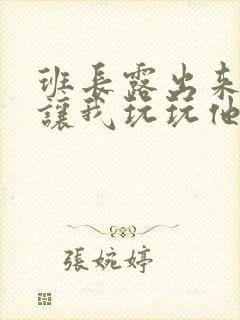 班長露出來
讓我玩玩他
張婉婷